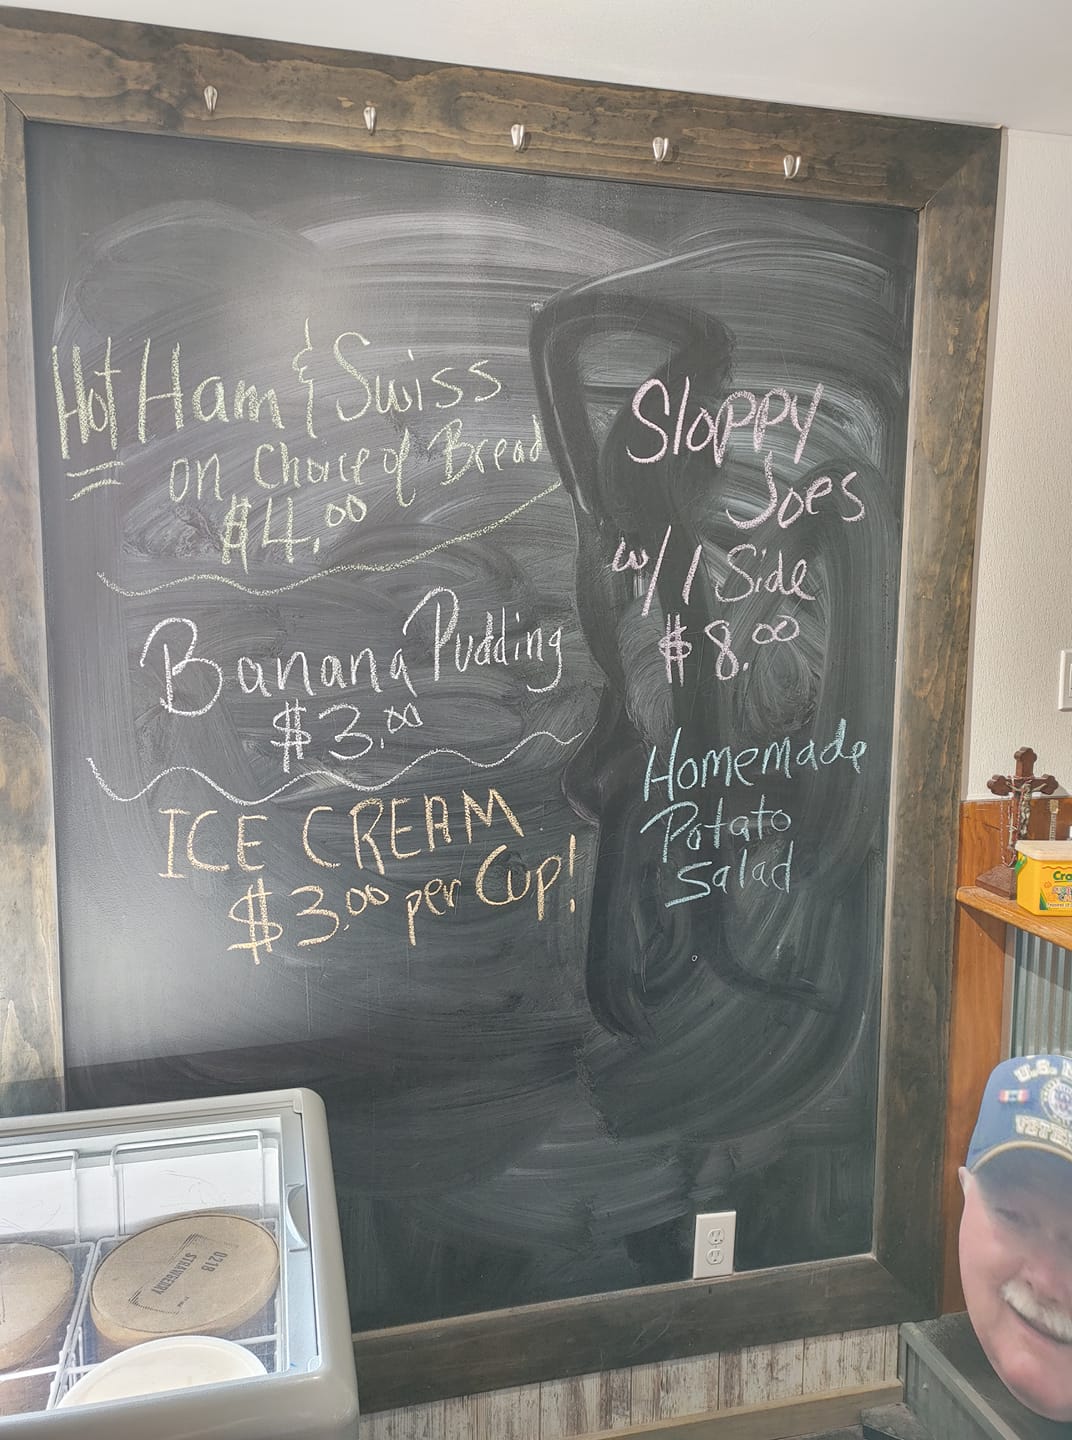 Hot Ham & Swiss
on Choice of Bread
$4.00
Banana Pudding
$3.00
ICE CREAM
$3.00 per Cup!
Sloppy
Joes
w/ 1 Side
$8.00
Homemade
Potato
Salad
0218
STRAWBERRY
Cra
U.S.
VETE